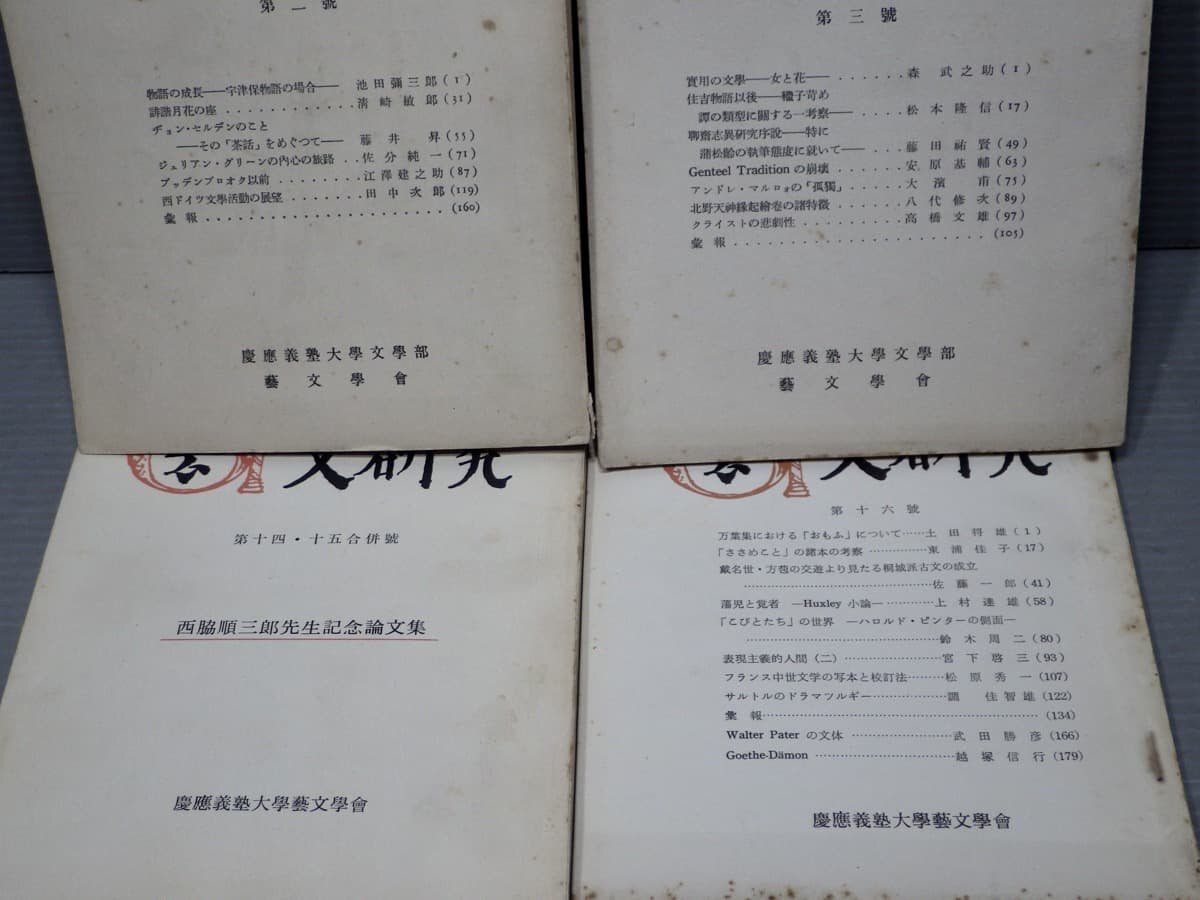 第二號
物語の成長——宇津保物語の場合—— 池田彌三郎(1)
誹諧月花の座............清崎敏郎(31)
ヂョン・セルデンのこと
——その「茶話」をめぐつて—— 藤井 昇(55)
ジュリアン・グリーンの内心の旅路..佐分純一(71)
ブッデンブロオク以前........江澤建之助(87)
西ドイツ文學活動の展望.......田中次郎(119)
彙報.......................(160)
慶應義塾大學文學部
藝文學會
第三號
實用の文學——女と花——......森 武之助(1)
住吉物語以後——繼子苛め
譚の類型に關する一考察——....松本隆信(17)
聊齋志異研究序說——特に
蒲松齡の執筆態度に就いて——...藤田祐賢(49)
Genteel Traditionの崩壞.....安原基輔(63)
アンドレ・マルロォの「孤獨」......大濱 甫(75)
北野天神緣起繪卷の諸特徵.......八代修次(89)
クライストの悲劇性..........高橋文雄(97)
彙報......................(105)
慶應義塾大學文學部
藝文學會
文研究
第十四・十五合併號
西脇順三郎先生記念論文集
慶應義塾大學藝文學會
文研究
第十六號
万葉集における「おもふ」について……土田将雄(1)
「ささめこと」の諸本の考察……………東浦佳子(17)
戴名世・方苞の交遊より見たる桐城派古文の成立
………………………………………佐藤一郎(41)
蕩児と覚者 —Huxley 小論—…………上村達雄(58)
「こびとたち」の世界 —ハロルド・ピンターの側面—
………………………………………鈴木周二(80)
表現主義的人間(二)……………………宮下啓三(93)
フランス中世文学の写本と校訂法………松原秀一(107)
サルトルのドラマツルギー………………調 佳智雄(122)
彙報…………………………………………………………(134)
Walter Pater の文体……………………武田勝彦(166)
Goethe-Dämon……………………………越塚信行(179)
慶應義塾大學藝文學會